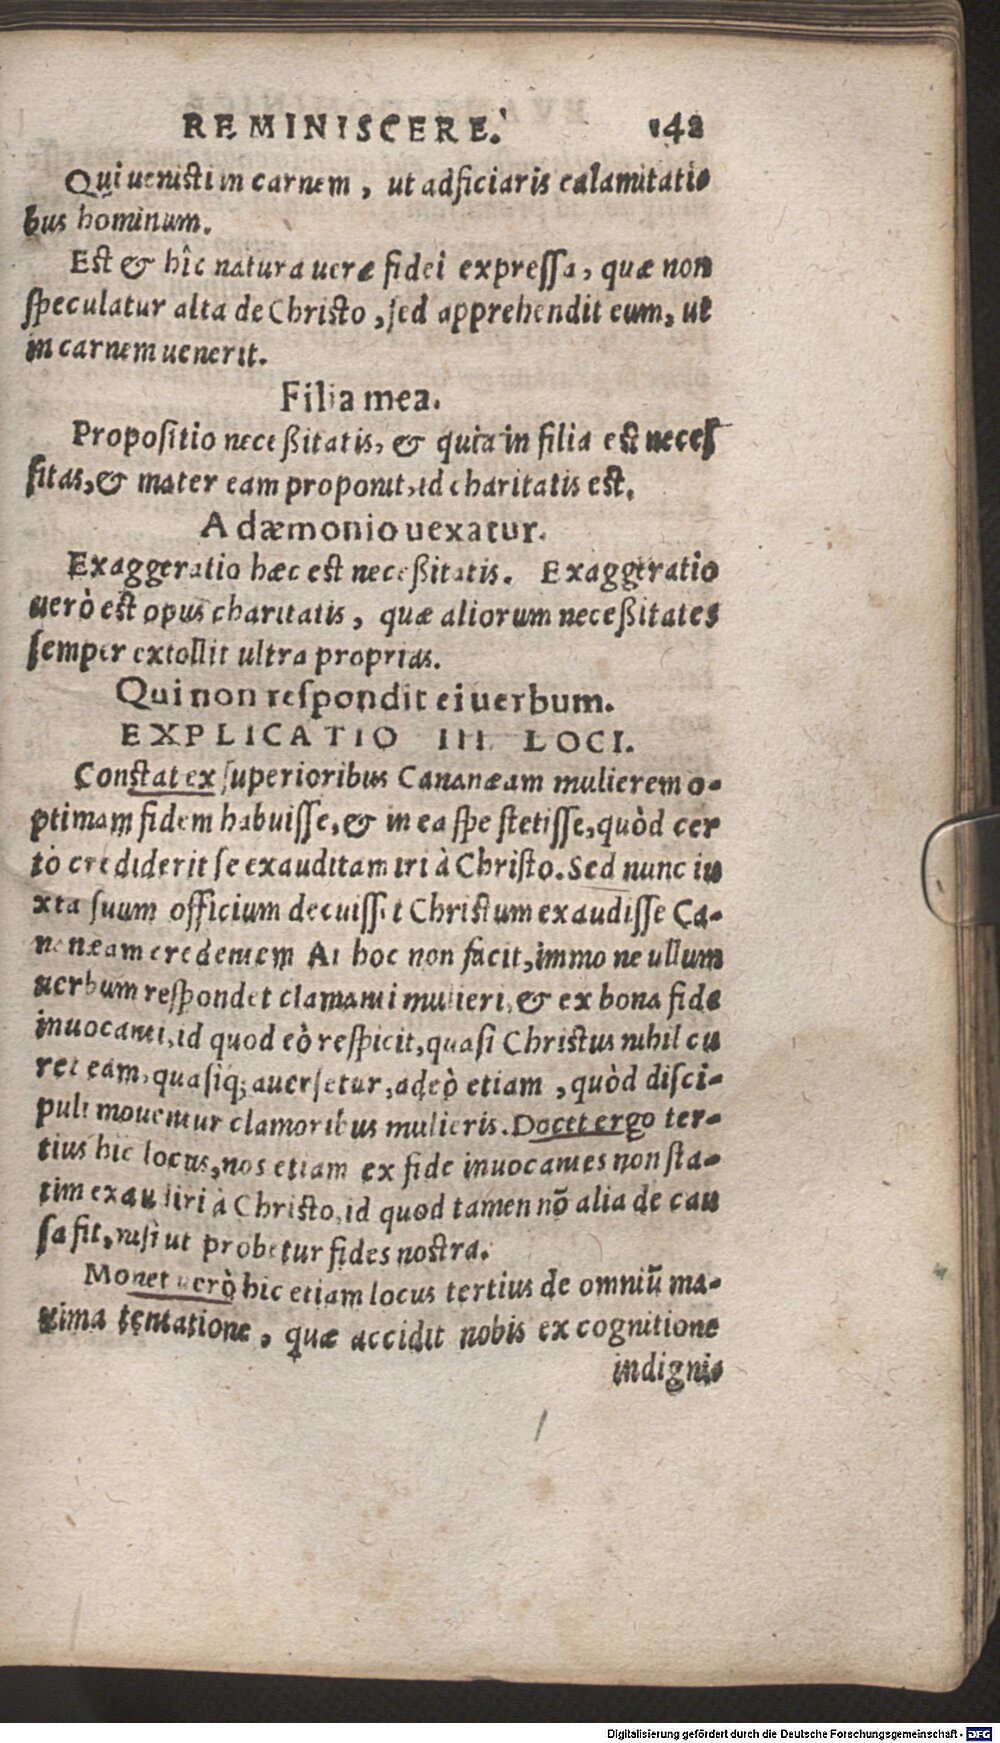 REMINISCERE. 142
Qui uenisti in carnem, ut adficiaris calamitati-
bus hominum.
Est & hîc natura ueræ fidei expressa, quæ non
speculatur alta de Christo, sed apprehendit eum, ut
in carnem uenerit.
Filia mea.
Propositio neceßitatis, & quia in filia est neces
sitas, & mater eam proponit, id charitatis est.
A dæmonio uexatur.
Exaggeratio hæc est neceßitatis. Exaggeratio
uerò est opus charitatis, quæ aliorum neceßitates
semper extollit ultra proprias.
Qui non respondit ei uerbum.
EXPLICATIO III LOCI.
Constat ex superioribus Cananæam mulierem o-
ptimam fidem habuisse, & in ea spe stetisse, quòd cer
to crediderit se exauditam iri à Christo. Sed nunc iu
xta suum officium decuisset Christum exaudisse Ca-
nenæam credentem At hoc non facit, immo ne ullum
uerbum respondet clamanti mulieri, & ex bona fide
inuocanti, id quod eò respicit, quasi Christus nihil cu
ret eam, quasiq; auersetur, adeò etiam, quòd disci-
puli mouentur clamoribus mulieris. Docet ergo ter-
tius hic locus, nos etiam ex fide inuocantes non sta-
tim exaudiri à Christo, id quod tamen nõ alia de cau
sa fit, nisi ut probetur fides nostra.
Monet uerò hic etiam locus tertius de omniũ ma-
xima tentatione, quæ accidit nobis ex cognitione
indigni-
Digitalisierung gefördert durch die Deutsche Forschungsgemeinschaft - DFG